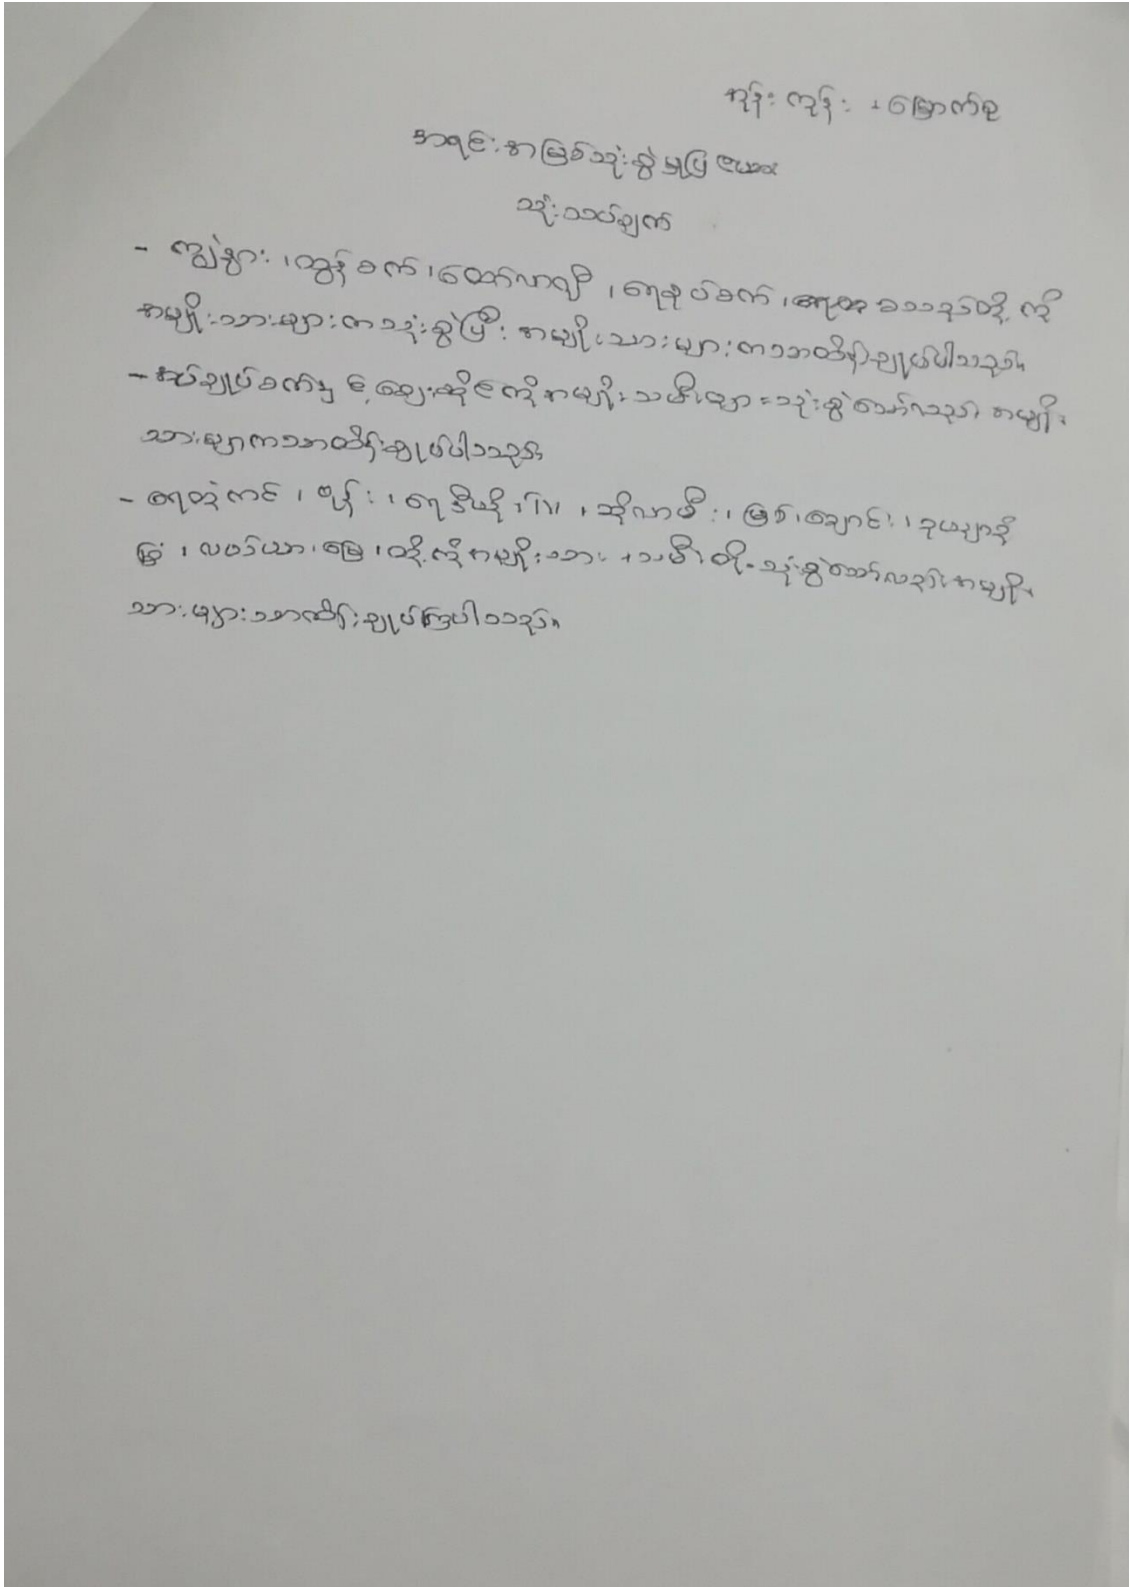 ကုန်း ကုန်း ၊ မြောက်စု
အရင်းအမြစ်သုံးစွဲမှုပြ ဇယား
သုံးသပ်ချက်
- ကျွဲ၊နွား ၊ ထွန်စက် ၊ ထော်လာဂျီ ၊ ရေစုပ်စက် ၊ စသည်တို့ ကို
အမျိုးသားများကသုံးစွဲပြီး အမျိုးသားများကသာထိန်းချုပ်ပါသည်။
- အပ်ချုပ်စက်နှင့် ဈေးဆိုင်ကိုအမျိုးသမီးများသုံးစွဲသော်လည်း အမျိုး
သားများကသာထိန်းချုပ်ပါသည်။
- ရေတွင်းကန် ၊ ဖုန်း ၊ ရေဒီယို ၊ TV ၊ ဆိုလာမီး ၊ မြစ်၊ချောင်း ၊ ဥယျာဉ်
ခြံ ၊ လယ်ယာ ၊ မြေ ၊ တို့ကိုအမျိုးသား ၊ သမီးတို့ သုံးစွဲသော်လည်း အမျိုး
သားများသာထိန်းချုပ်ကြပါသည်။